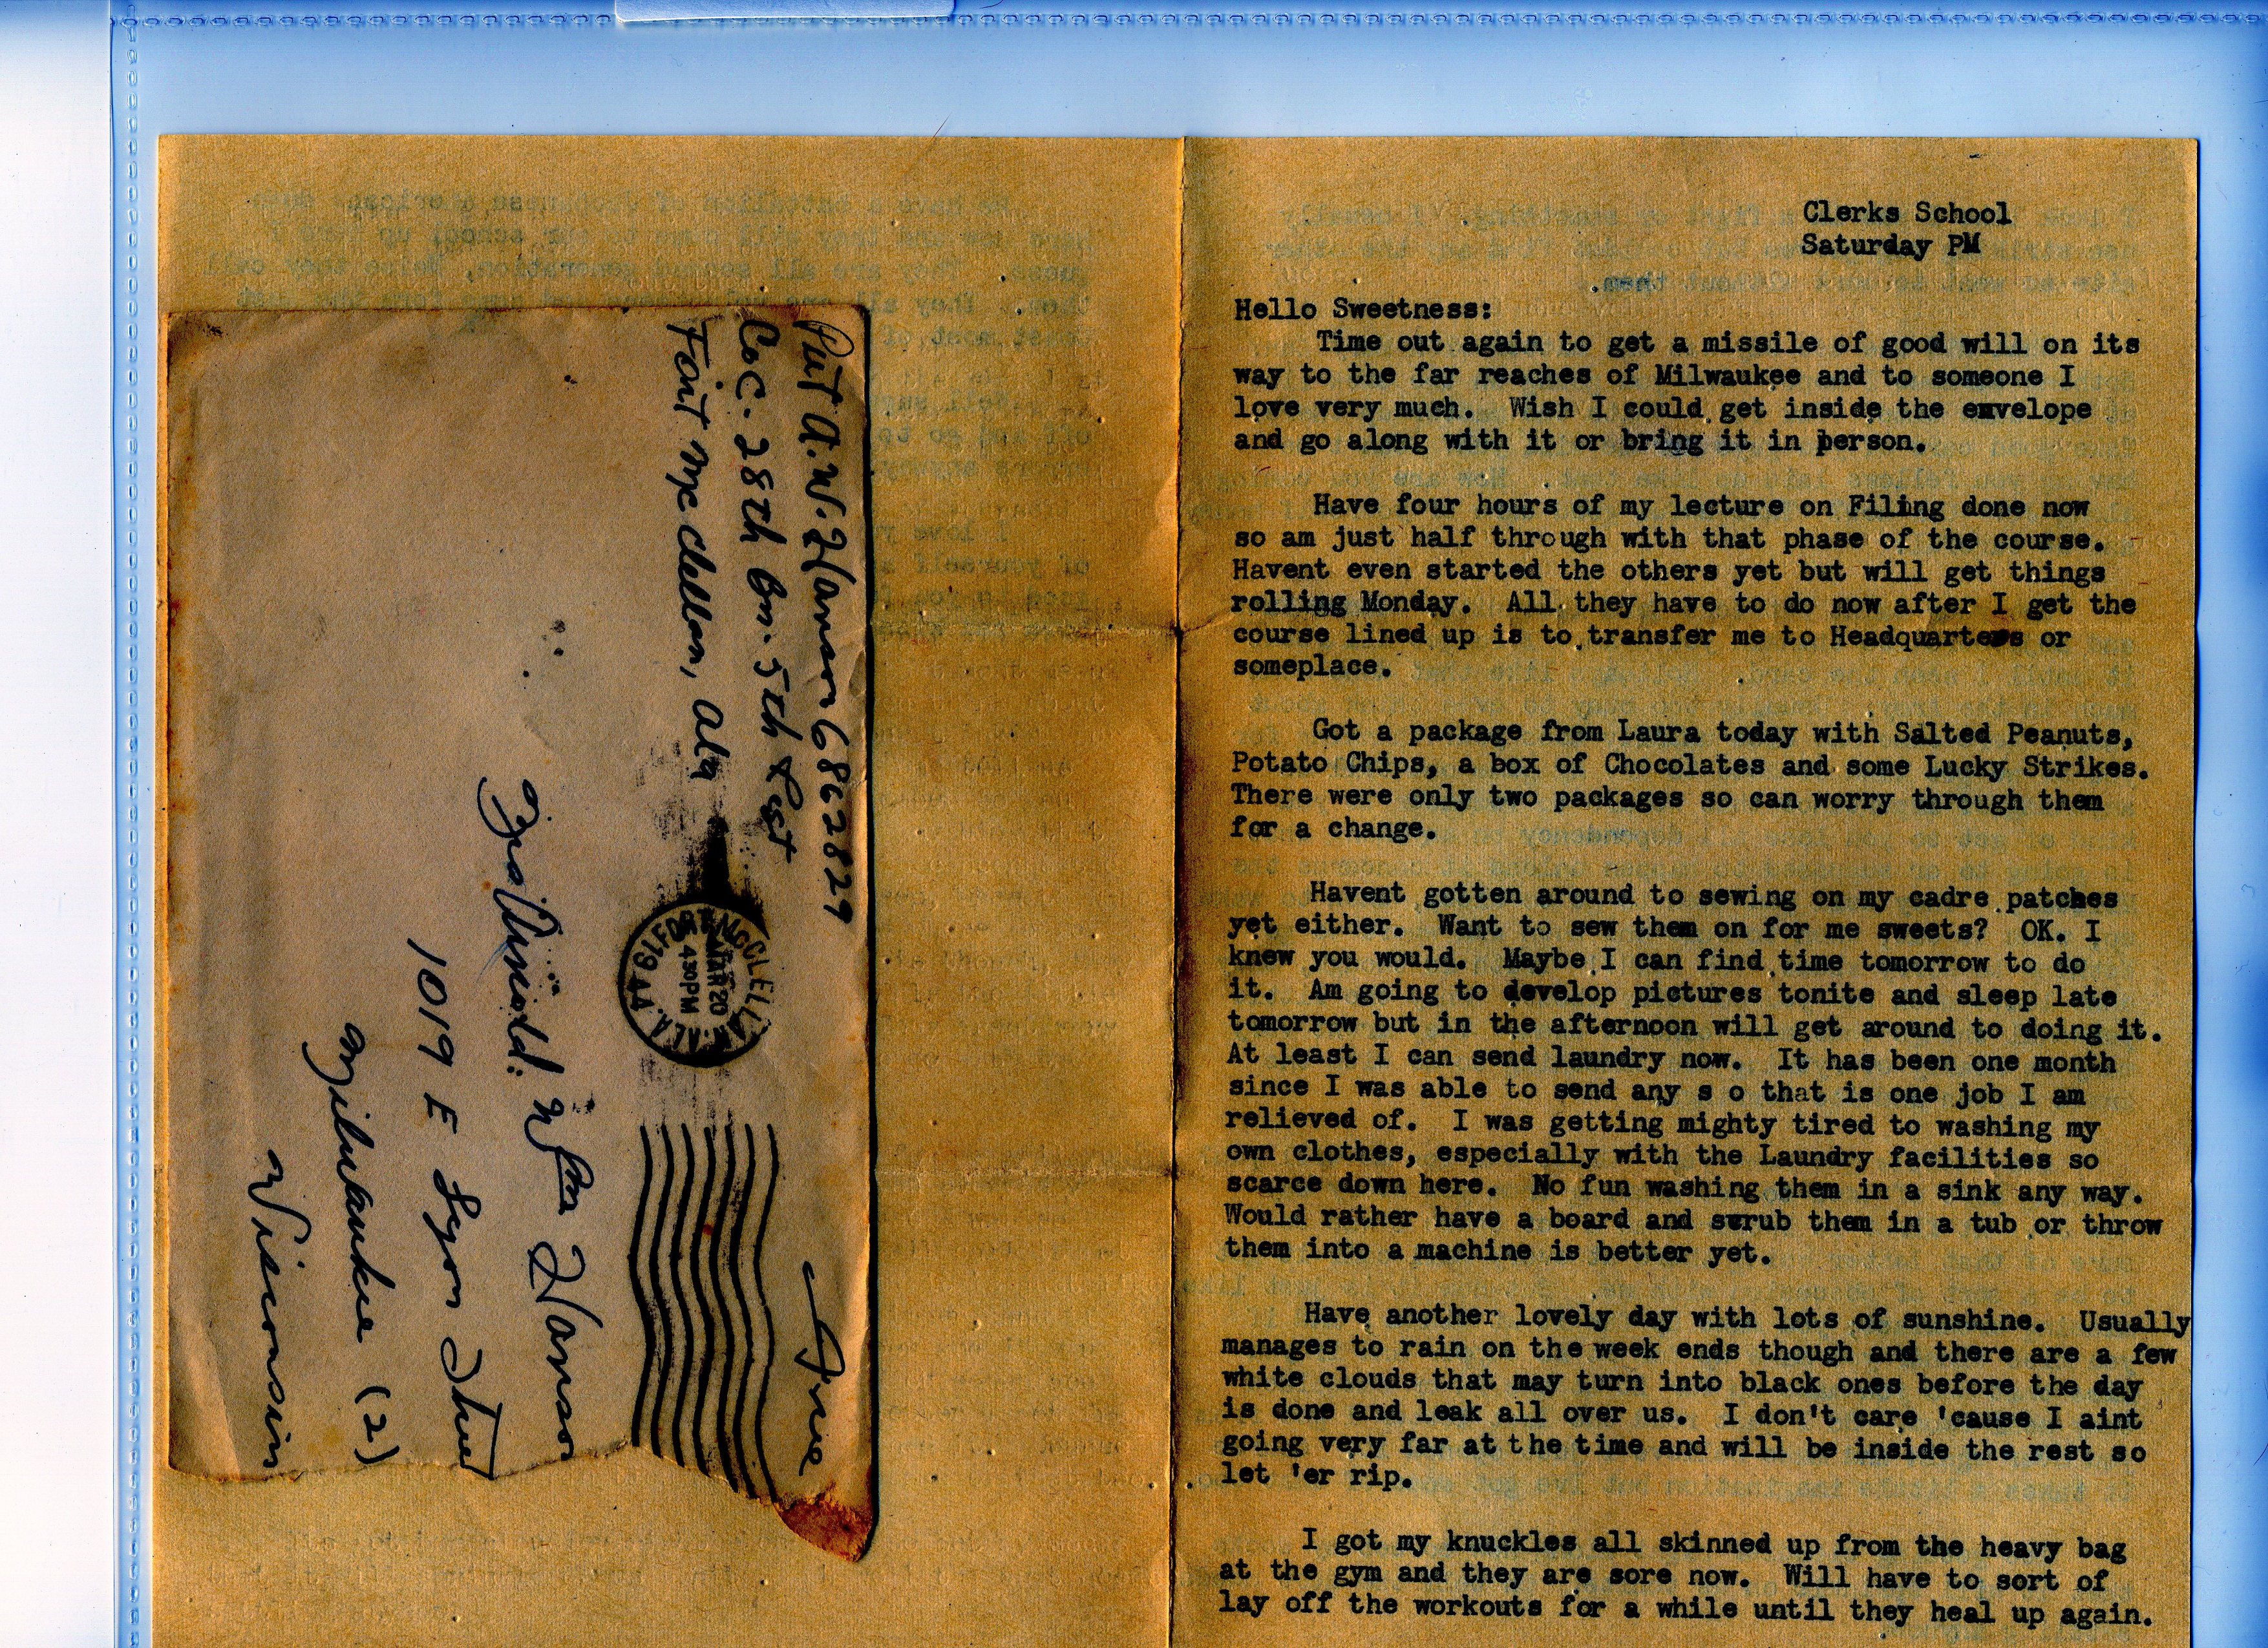 Pvt A.W. Hanson 6862829
Co C. 28th Bn. 5th Regt
Fort McClellan, Ala
Free
FORT MCCLELLAN, ALA.
MAR 20
430PM
1944
Arnold W Hanson
1019 E Lyon Street
Milwaukee (2)
Wisconsin
Clerks School
Saturday PM
Hello Sweetness:
Time out again to get a missile of good will on its
way to the far reaches of Milwaukee and to someone I
love very much. Wish I could get inside the envelope
and go along with it or bring it in person.
Have four hours of my lecture on Filing done now
so am just half through with that phase of the course.
Havent even started the others yet but will get things
rolling Monday. All they have to do now after I get the
course lined up is to transfer me to Headquarters or
someplace.
Got a package from Laura today with Salted Peanuts,
Potato Chips, a box of Chocolates and some Lucky Strikes.
There were only two packages so can worry through them
for a change.
Havent gotten around to sewing on my cadre patches
yet either. Want to sew them on for me sweets? OK. I
knew you would. Maybe I can find time tomorrow to do
it. Am going to develop pictures tonite and sleep late
tomorrow but in the afternoon will get around to doing it.
At least I can send laundry now. It has been one month
since I was able to send any s o that is one job I am
relieved of. I was getting mighty tired to washing my
own clothes, especially with the Laundry facilities so
scarce down here. No fun washing them in a sink any way.
Would rather have a board and scrub them in a tub or throw
them into a machine is better yet.
Have another lovely day with lots of sunshine. Usually
manages to rain on the week ends though and there are a few
white clouds that may turn into black ones before the day
is done and leak all over us. I don't care 'cause I aint
going very far at the time and will be inside the rest so
let 'er rip.
I got my knuckles all skinned up from the heavy bag
at the gym and they are sore now. Will have to sort of
lay off the workouts for a while until they heal up again.